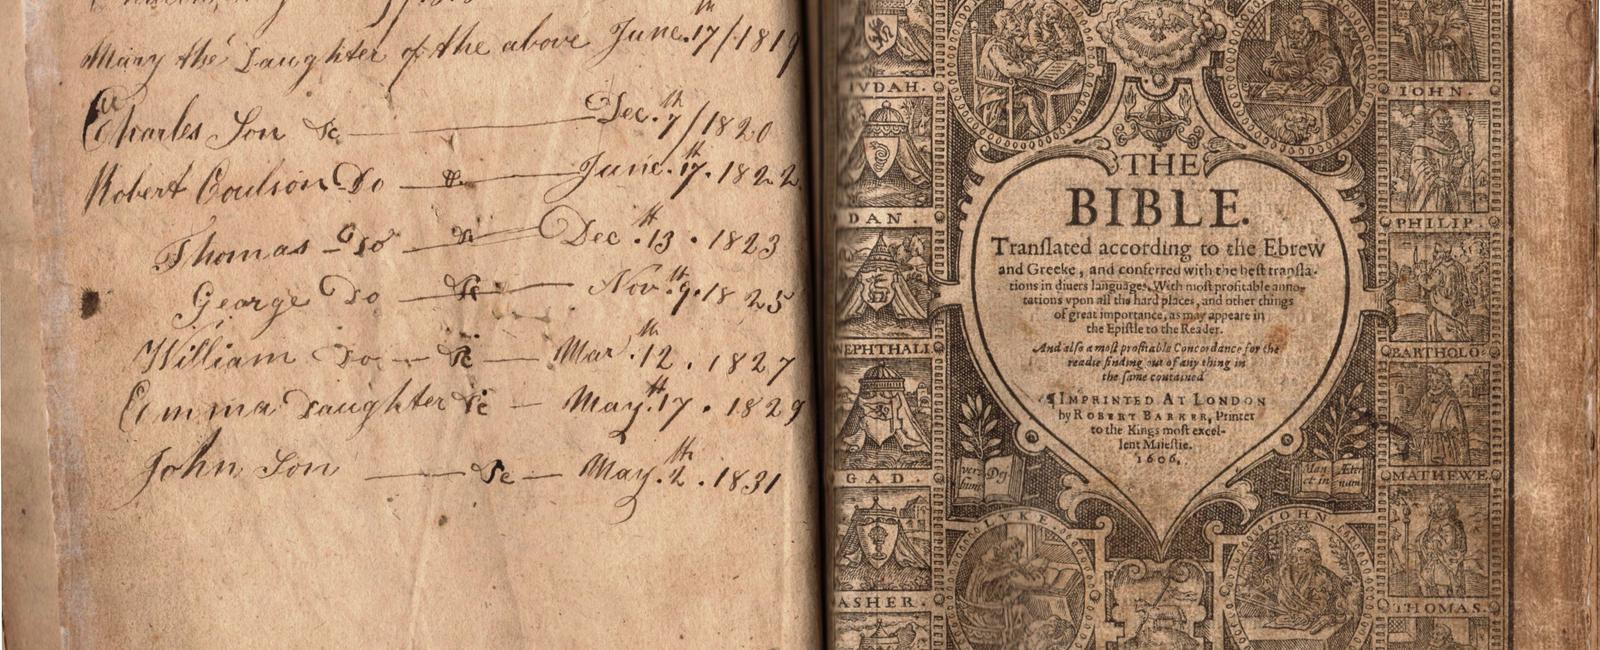 Mary the Daughter of the above June. 17th/1819
Charles Son &c — Dec. 7th/1820
Robert Coulson Do — &c — June. 17th. 1822.
Thomas — Do — &c — Dec. 13th. 1823
George Do — &c — Nov. 9th. 1825
William Do — &c — Mar. 12th. 1827
Emma Daughter &c — May. 17th. 1829
John Son — &c — May. 2th. 1831
IVDAH.
DAN.
NEPHTHALI
GAD.
ASHER.
THE
BIBLE.
Tranſlated according to the Ebrew
and Greeke, and conferred with the beſt tranſla-
tions in diuers languages. With moſt profitable anno-
tations vpon all the hard places, and other things
of great importance, as may appeare in
the Epiſtle to the Reader.
And alſo a moſt profitable Concordance for the
readie finding out of any thing in
the ſame contained
¶ IMPRINTED AT LONDON
by ROBERT BARKER, Printer
to the Kings moſt excel-
lent Maieſtie.
1606.
ver- Dei
bum
Man Æter
et in num
LVKE.
IOHN.
IOHN.
PHILIP.
BARTHOLO:
MATHEWE
THOMAS.